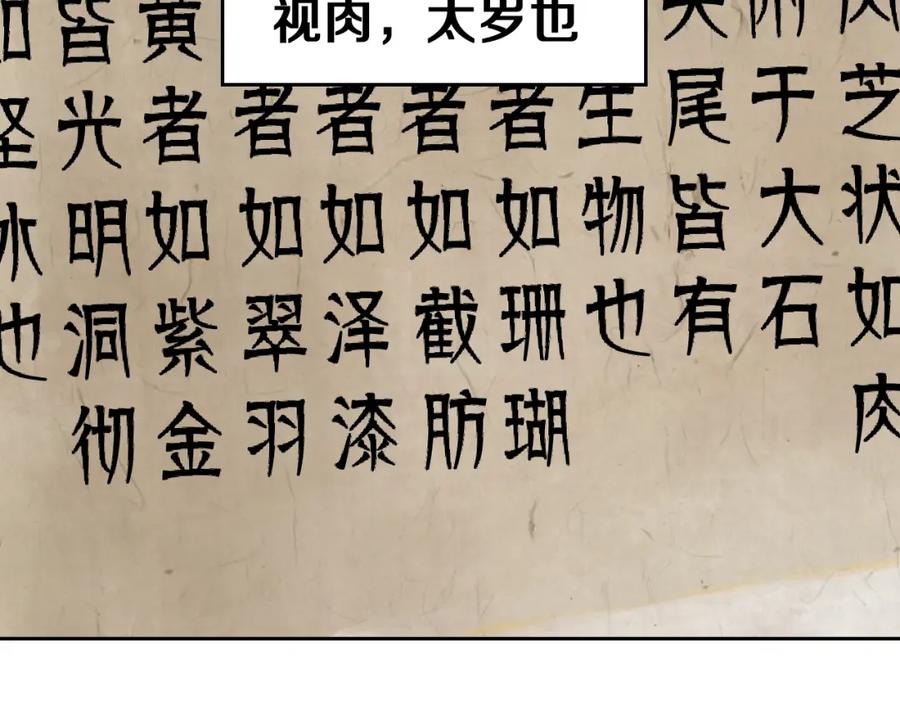 视肉，太罗也
肉芝状如肉
附于大石
头尾皆有
生物也
者如珊瑚
者如截肪
者如泽漆
者如翠羽
黄者如紫金
皆光明洞彻
如坚冰也